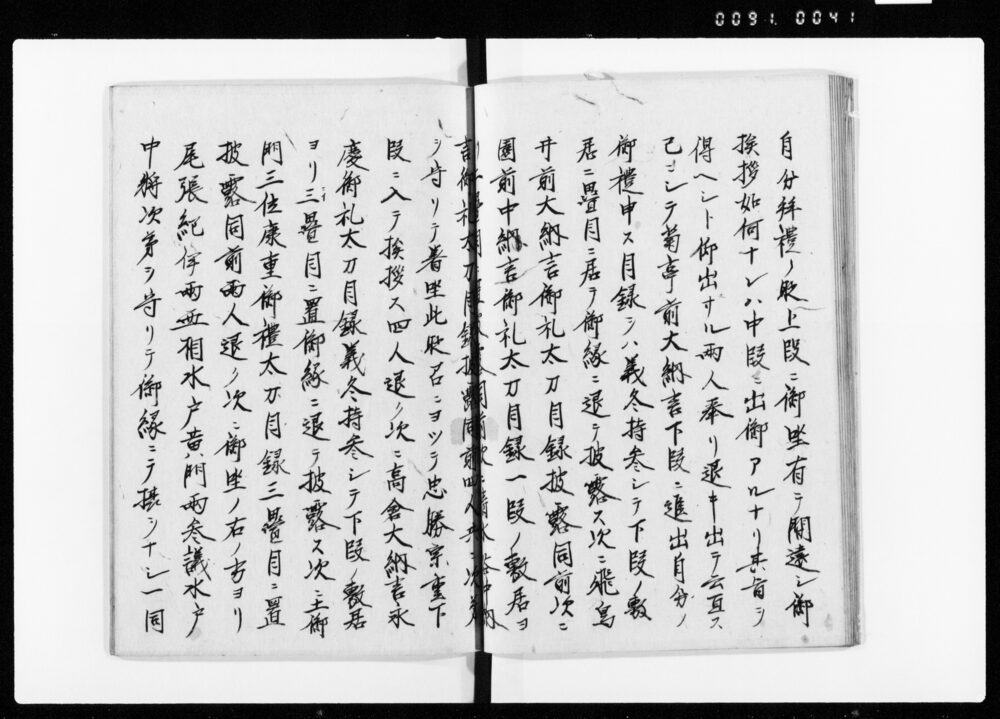 0091.0041
自分拜禮ノ時上段ニ御坐有テ間遠シ御
挨拶如何ナレハ中段ニ出御アルナリ其旨ヲ
得ヘシト仰出サル兩人奉リ退キ出テ云亘ス
已ニシテ菊亭前大納言下段ニ進出自分ノ
御禮申ス目録ヲハ義冬持參シテ下段ノ敷
居ニ疊目ニ居テ御縁ニ退テ披露ス次ニ飛鳥
井前大納言御礼太刀目録披露同前次ニ
園前中納言御礼太刀目録一段ノ敷居ヨ
言御礼太刀目録披露同前
ヲ守リテ着坐此時召ニヨツテ忠勝宗重下
段ニ入テ挨拶ス四人退ク次ニ高倉大納言永
慶御礼太刀目録義冬持參シテ下段ノ敷居
ヨリ三疊目ニ置御縁ニ退テ披露ス次ニ土御
門三位康重御禮太刀目録三疊目ニ置
披露同前兩人退ク次ニ御坐ノ右ノ方ヨリ
尾張紀伊兩亜相水戸黄門兩參議水戸
中將次第ヲ守リテ御縁ニテ揖ヲナシ一同